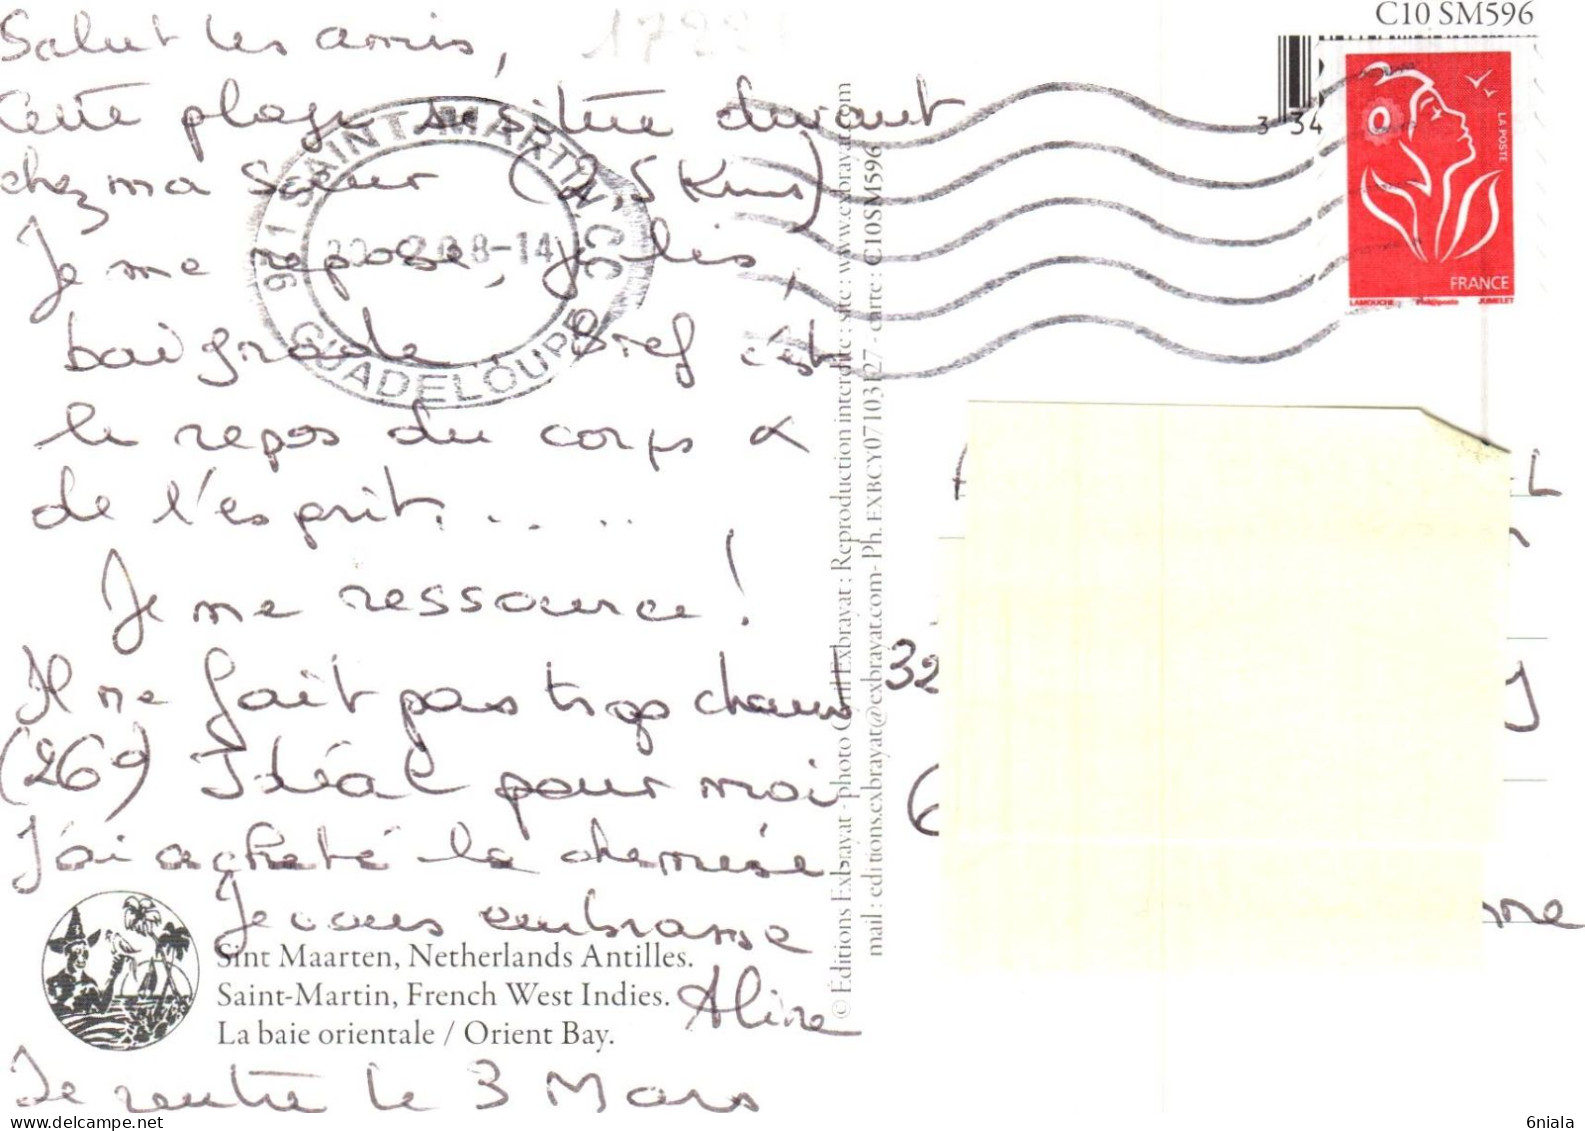 Salut les amis,
Cette plage se situe devant
chez ma Sœur (2,5 Kms)
Je me repose, je lis,
baignade. Bref c'est
le repos du corps &
de l'esprit. . . . .
Je me ressource !
Il ne fait pas trop chaud
(26°) Idéal pour moi.
J'ai acheté la chemise.
Je vous embrasse
Aline
Je rentre le 3 Mars
Sint Maarten, Netherlands Antilles.
Saint-Martin, French West Indies.
La baie orientale / Orient Bay.
971 SAINT-MARTIN CC
8-14
GUADELOUPE
© Éditions Exbrayat - photo Cyril Exbrayat : Reproduction interdite : site : www.exbrayat.com
mail : editions.exbrayat@exbrayat.com- Ph. EXBCY07103127 - carte : C10SM596
C10 SM596
3 34
LA POSTE
FRANCE
LAMOUCHE Phil@poste JUMELET
L
32
y
6
nne
6niala